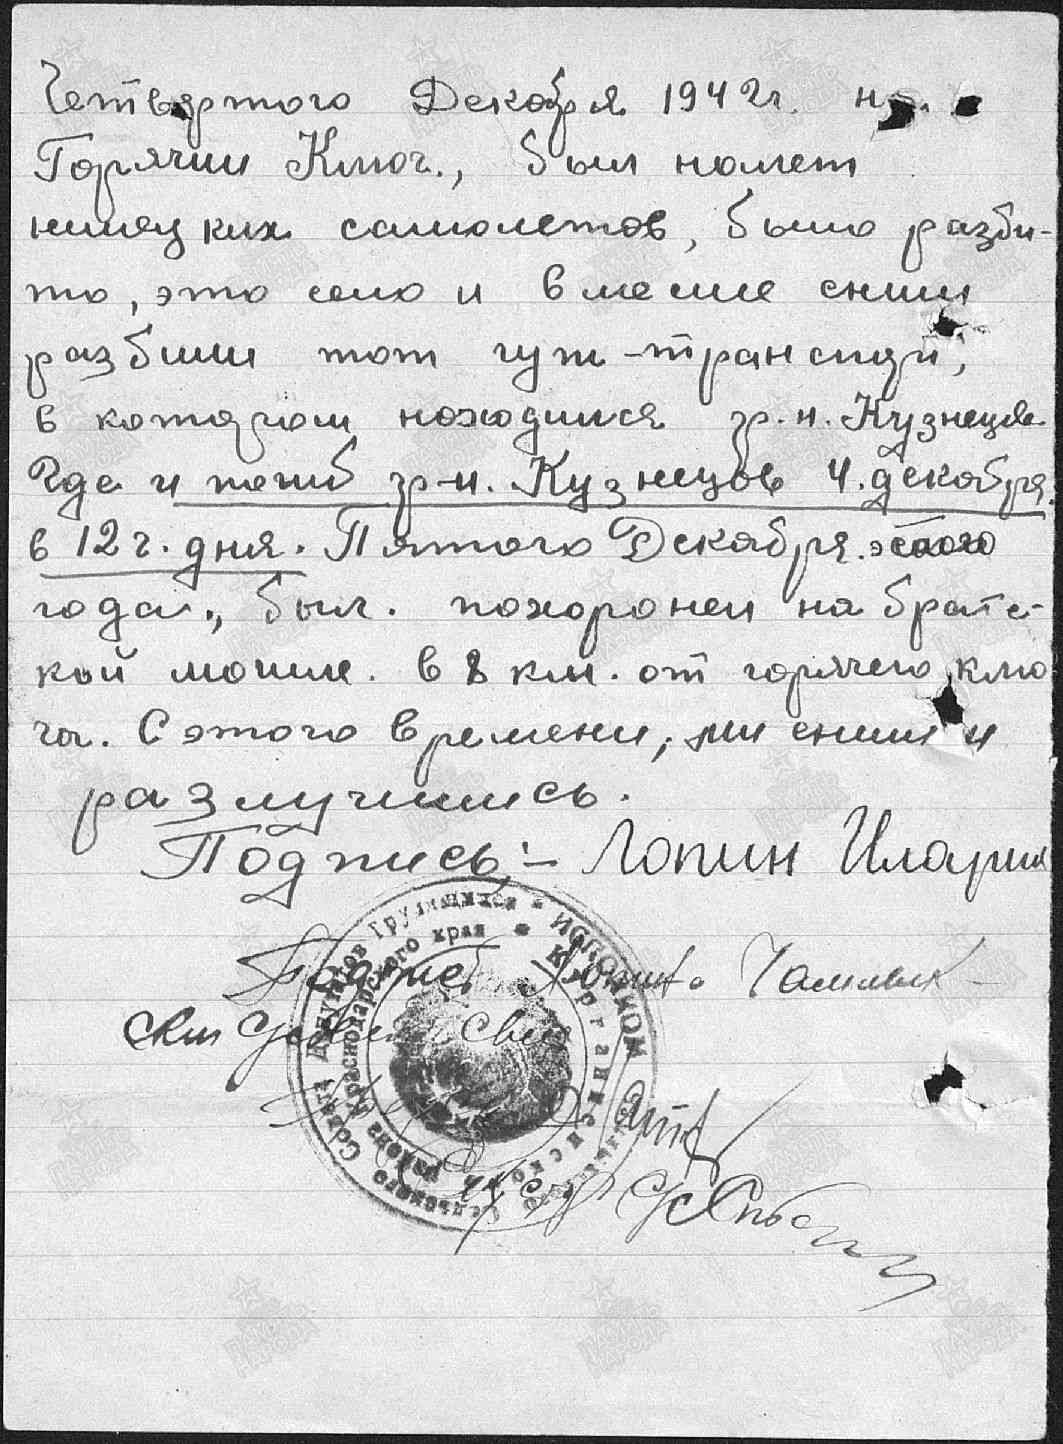 Четвертого Декабря 1942г. на
Горячии Ключ., был налет
нимецких самолетов, было разби-
то, это село и вместе сним
разбили тот гуж-транспорт,
в котором находился гр.н. Кузнецов.
Где и погиб гр-н. Кузнецов 4. декабря
в 12 ч. дня. Пятого Декабря. этого
года., был. похоронен на братс-
кой могиле. в 8 км. от горячего клю
ча. С этого времени, ми сним и
разлучились.
Подпись:- Лопин Илларион
Подпись Лопина
ИСПОЛКОМ Сельского Совета Депутатов Трудящихся
района Краснодарского края